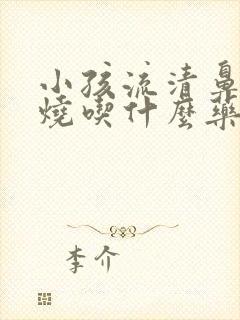 小孩流清鼻
燒喫什麼藥
李介